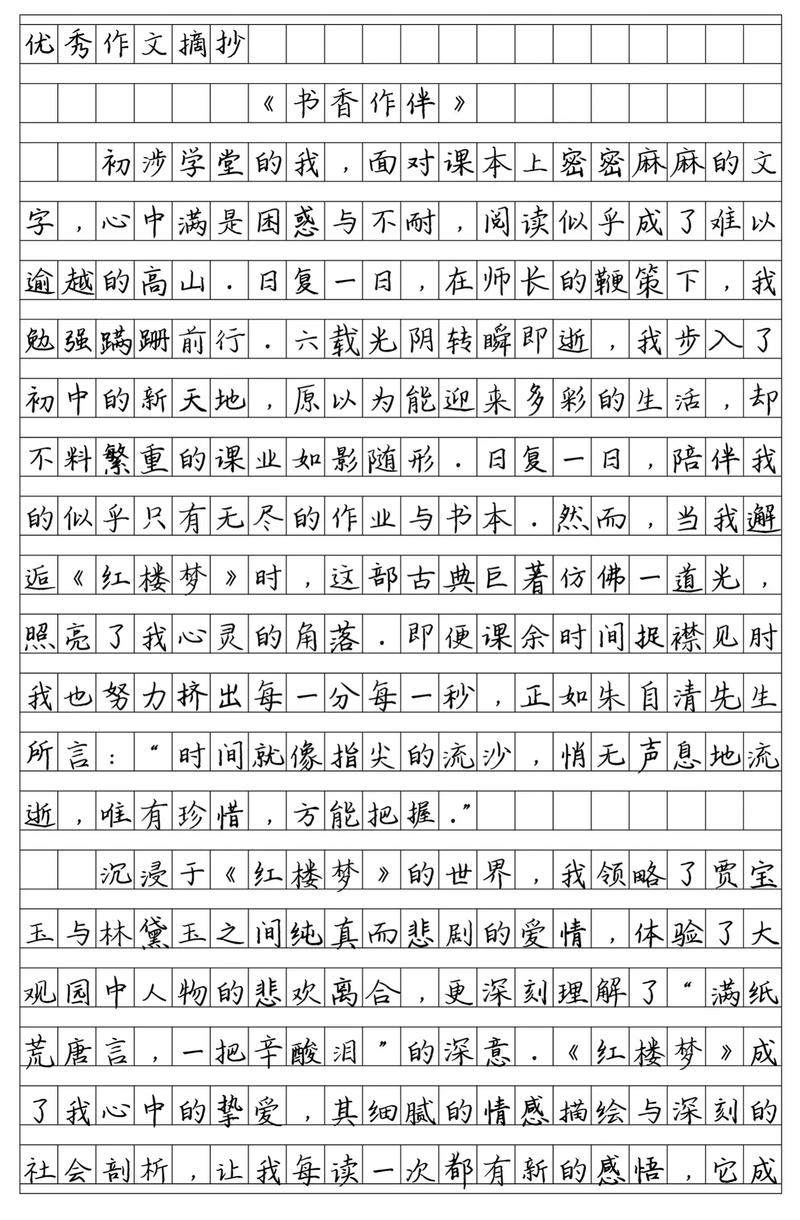 优秀作文摘抄
《书香作伴》
初涉学堂的我,面对课本上密密麻麻的文
字,心中满是困惑与不耐,阅读似乎成了难以
逾越的高山.日复一日,在师长的鞭策下,我
勉强蹒跚前行.六载光阴转瞬即逝,我步入了
初中的新天地,原以为能迎来多彩的生活,却
不料繁重的课业如影随形.日复一日,陪伴我
的似乎只有无尽的作业与书本.然而,当我邂
逅《红楼梦》时,这部古典巨著仿佛一道光,
照亮了我心灵的角落.即便课余时间捉襟见肘
我也努力挤出每一分每一秒,正如朱自清先生
所言:“时间就像指尖的流沙,悄无声息地流
逝,唯有珍惜,方能把握.”
沉浸于《红楼梦》的世界,我领略了贾宝
玉与林黛玉之间纯真而悲剧的爱情,体验了大
观园中人物的悲欢离合,更深刻理解了“满纸
荒唐言,一把辛酸泪”的深意.《红楼梦》成
了我心中的挚爱,其细腻的情感描绘与深刻的
社会剖析,让我每读一次都有新的感悟,它成